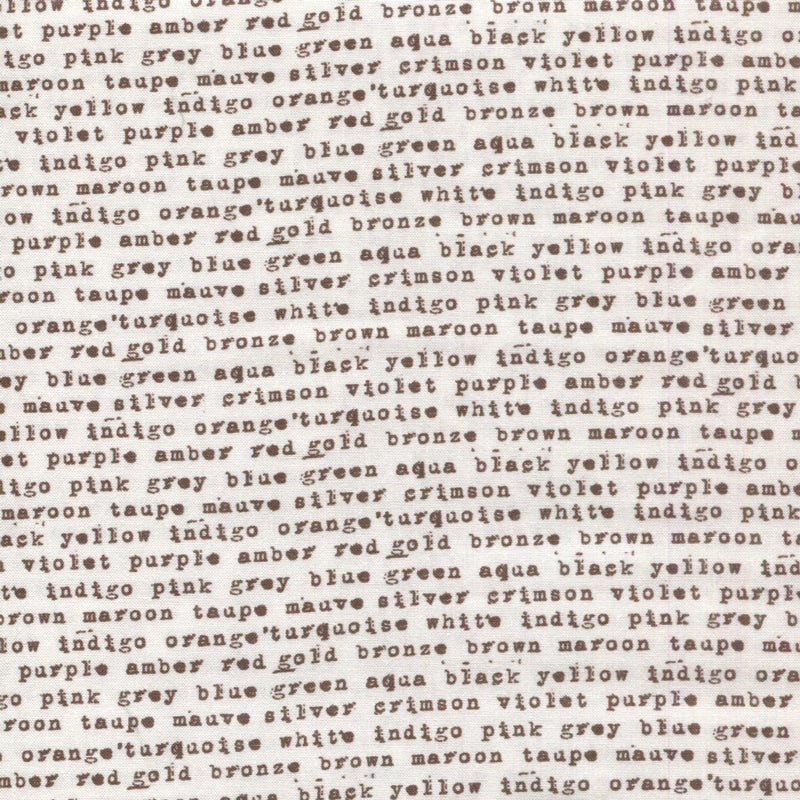 yellow indigo orange
et purple amber red gold bronze brown maroon taupe m
igo pink grey blue green aqua black yellow indigo o
maroon taupe mauve silver crimson violet purple ambe
ack yellow indigo orange'turquoise white indigo pink
violet purple amber red gold bronze brown maroon ta
te indigo pink grey blue green aqua black yellow ind
rown maroon taupe mauve silver crimson violet purple
ow indigo orange'turquoise white indigo pink grey b
purple amber red gold bronze brown maroon taupe mau
o pink grey blue green aqua black yellow indigo ora
roon taupe mauve silver crimson violet purple amber
orange'turquoise white indigo pink grey blue green
mber red gold bronze brown maroon taupe mauve silver
ey blue green aqua black yellow indigo orange'turquo
e mauve silver crimson violet purple amber red gold b
ellow indigo orange'turquoise white indigo pink grey
et purple amber red gold bronze brown maroon taupe m
digo pink grey blue green aqua black yellow indigo o
maroon taupe mauve silver crimson violet purple ambe
ack yellow indigo orange'turquoise white indigo pink
violet purple amber red gold bronze brown maroon ta
te indigo pink grey blue green aqua black yellow ind
brown maroon taupe mauve silver crimson violet purple
low indigo orange'turquoise white indigo pink grey b
purple amber red gold bronze brown maroon taupe mau
go pink grey blue green aqua black yellow indigo ora
roon taupe mauve silver crimson violet purple amber
orange'turquoise white indigo pink grey blue green
mber red gold bronze brown maroon taupe mauve silver
green aqua black yellow indigo orange'turquo